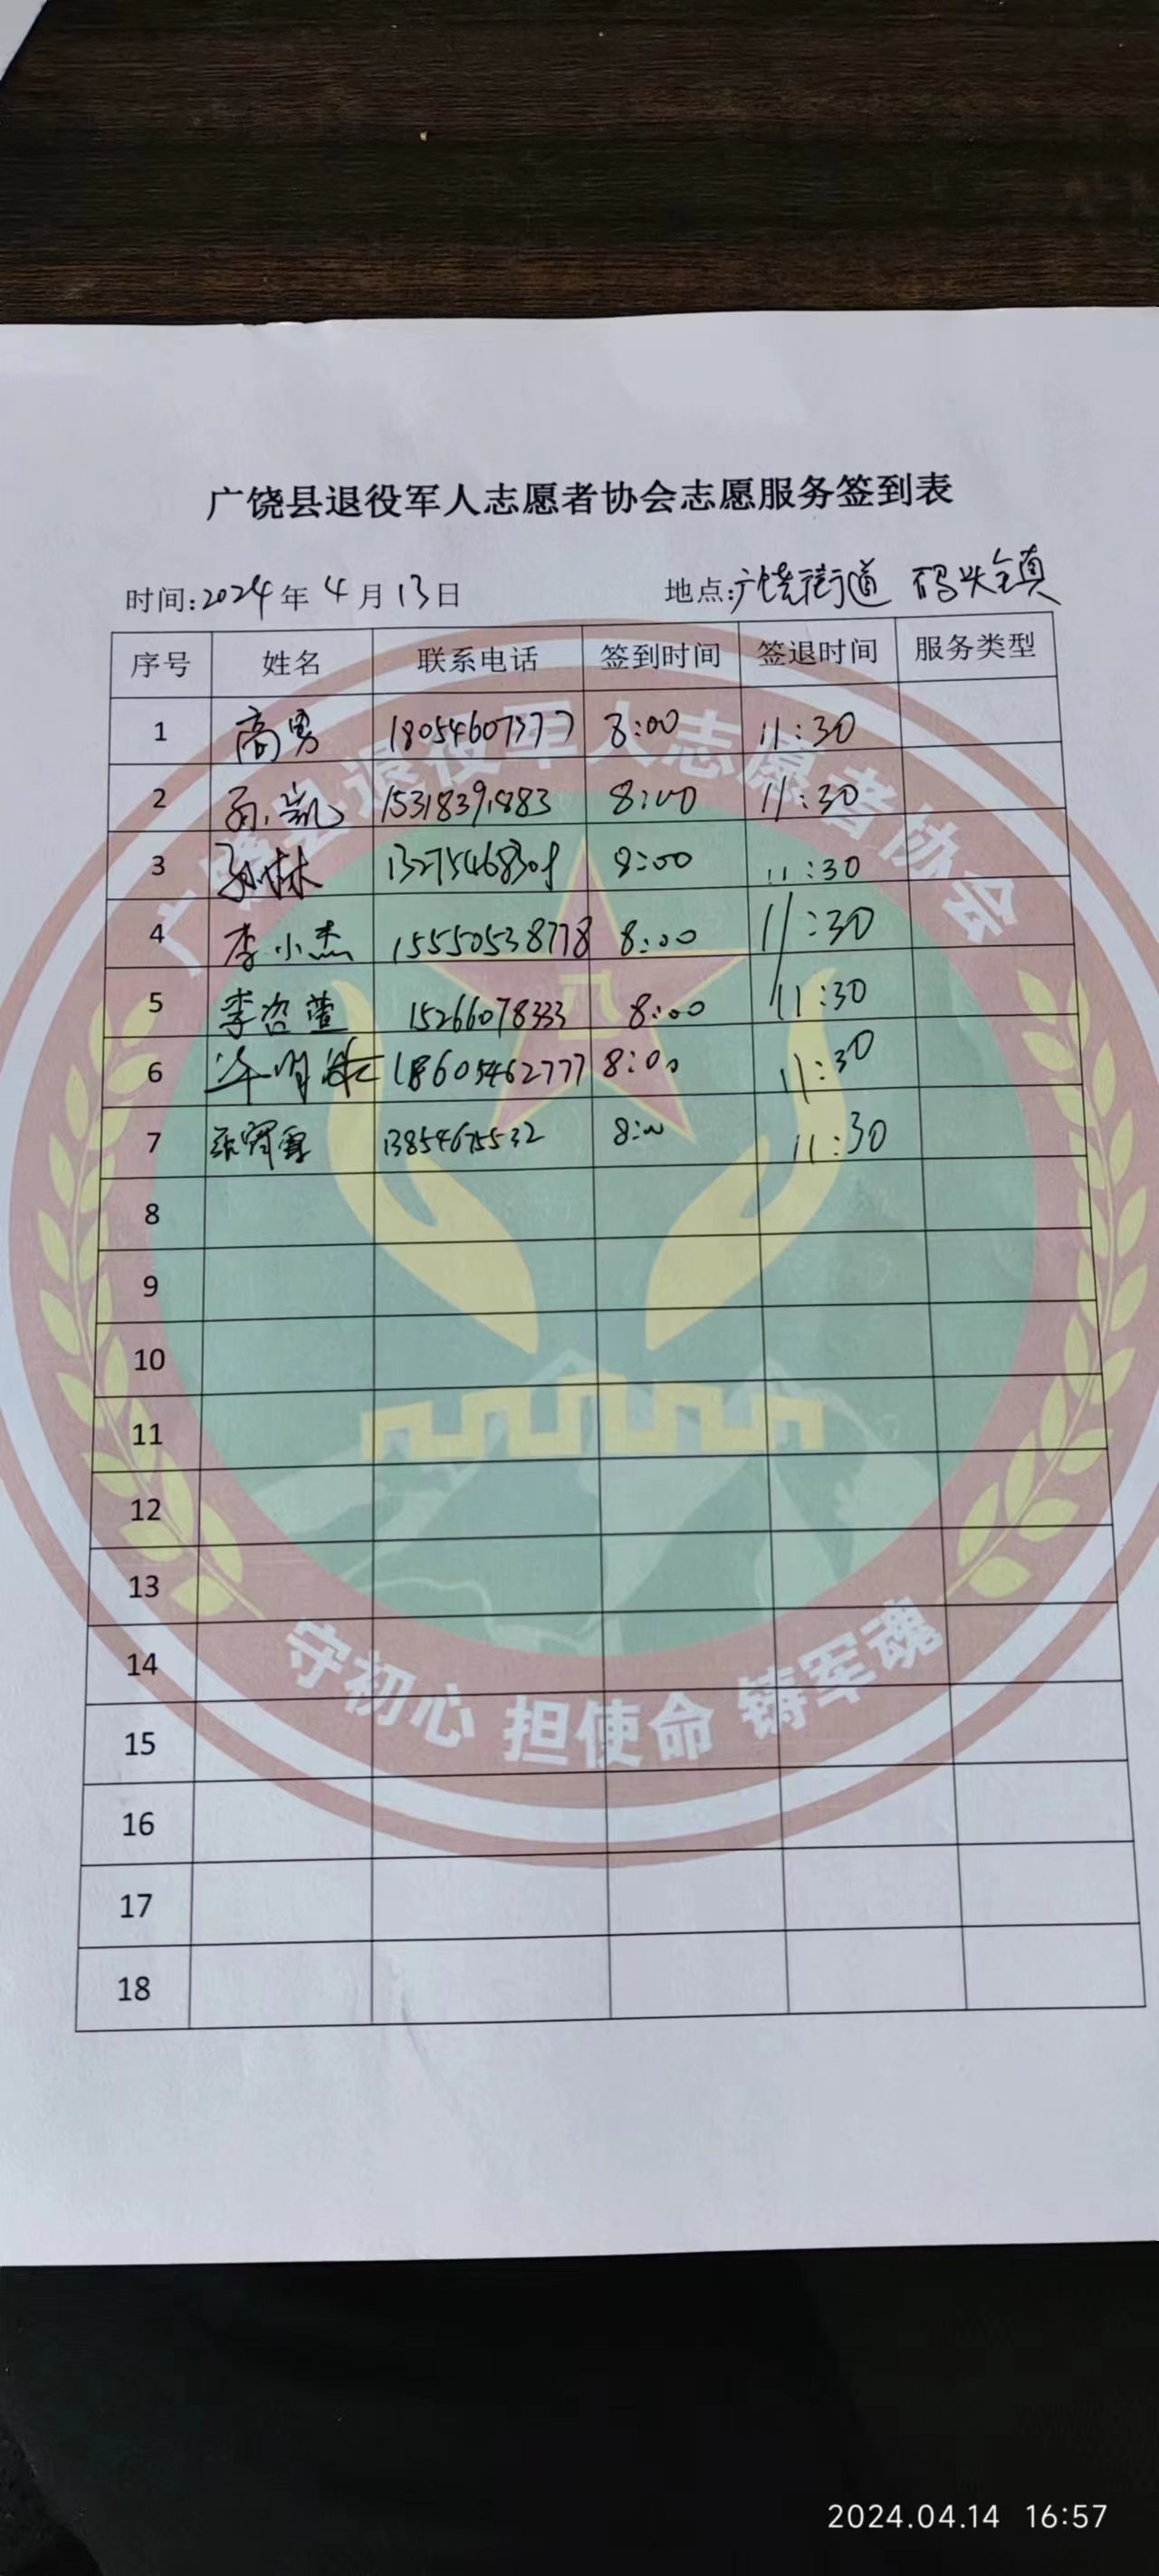 广饶县退役军人志愿者协会志愿服务签到表
时间:2024年4月13日 地点:广饶街道 码头镇
序号 姓名 联系电话 签到时间 签退时间 服务类型
1 高男 18054607377 8:00 11:30
2 孙凯 15318391883 8:00 11:30
3 孙林 8:00 11:30
4 李小杰 15550538778 8:00 11:30
5 李咨萱 15266078333 8:00 11:30
6 18605462777 8:00 11:30
7 13854675532 8:00 11:30
8
9
10
11
12
13
14
15
16
17
18
广饶县退役军人志愿者协会
八一
守初心 担使命 铸军魂
2024.04.14 16:57